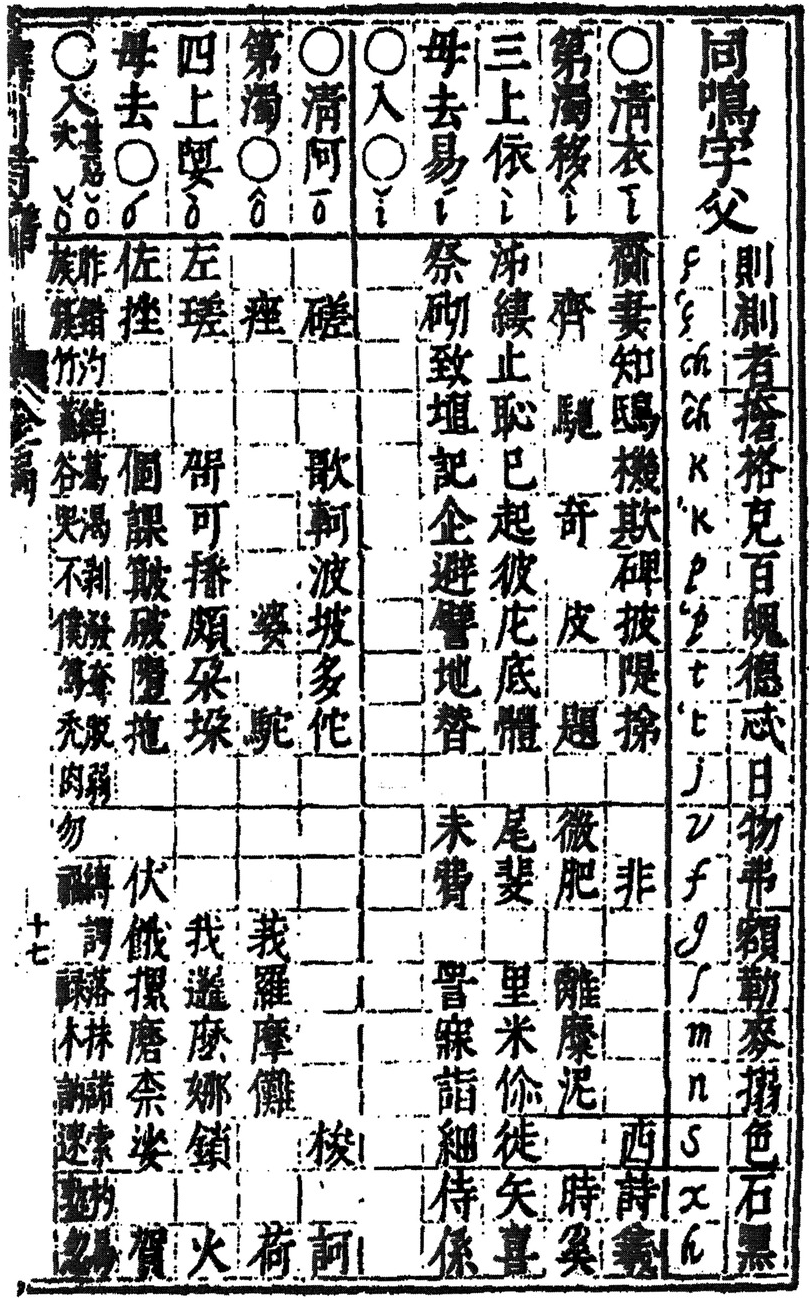 同鳴字父 則 測 者 撦 格 克 百 魄 德 忒 日 物 弗 額 勒 麥 搦 色 石 黑
ç ‘ç ch ‘ch K ‘K p ‘p t ‘t j v f g l m n s x h
○清衣 ī 齎 妻 知 鴟 機 欺 碑 披 隄 非 西 詩 羲
第濁移 î 齊 馳 奇 皮 題 微 肥 離 糜 泥 時 奚
三上依 ì 泲 止 恥 已 起 彼 庀 底 體 尾 斐 里 米 伱 徙 矢 喜
母去易 í 祭 砌 致 埴 記 企 避 譬 地 替 未 費 詈 寐 詣 細 侍 係
○入○ ǐ
○清阿 ō 磋 歌 軻 波 坡 多 佗 梭 訶
第濁○ ô 痤 婆 駝 莪 羅 摩 儺 荷
四上妸 ò 左 瑳 哿 可 播 頗 朶 垛 我 邏 麽 娜 鎖 火
母去○ ó 佐 挫 個 課 簸 破 拖 伏 餓 摞 磨 柰 娑 賀
○入 甚惡 ǒ 昨 錯 灼 綽 葛 渴 剥 潑 奪 脫 弱 縛 諤 落 抹 諾 索 杓 曷
次 ǒ 族 蔟 竹 畜 谷 哭 不 僕 篤 禿 肉 勿 福 祿 木 訥 速 塾 忽
十七